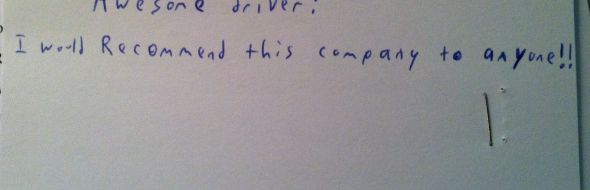 Awesome driver!
I would Recommend this company to anyone!!